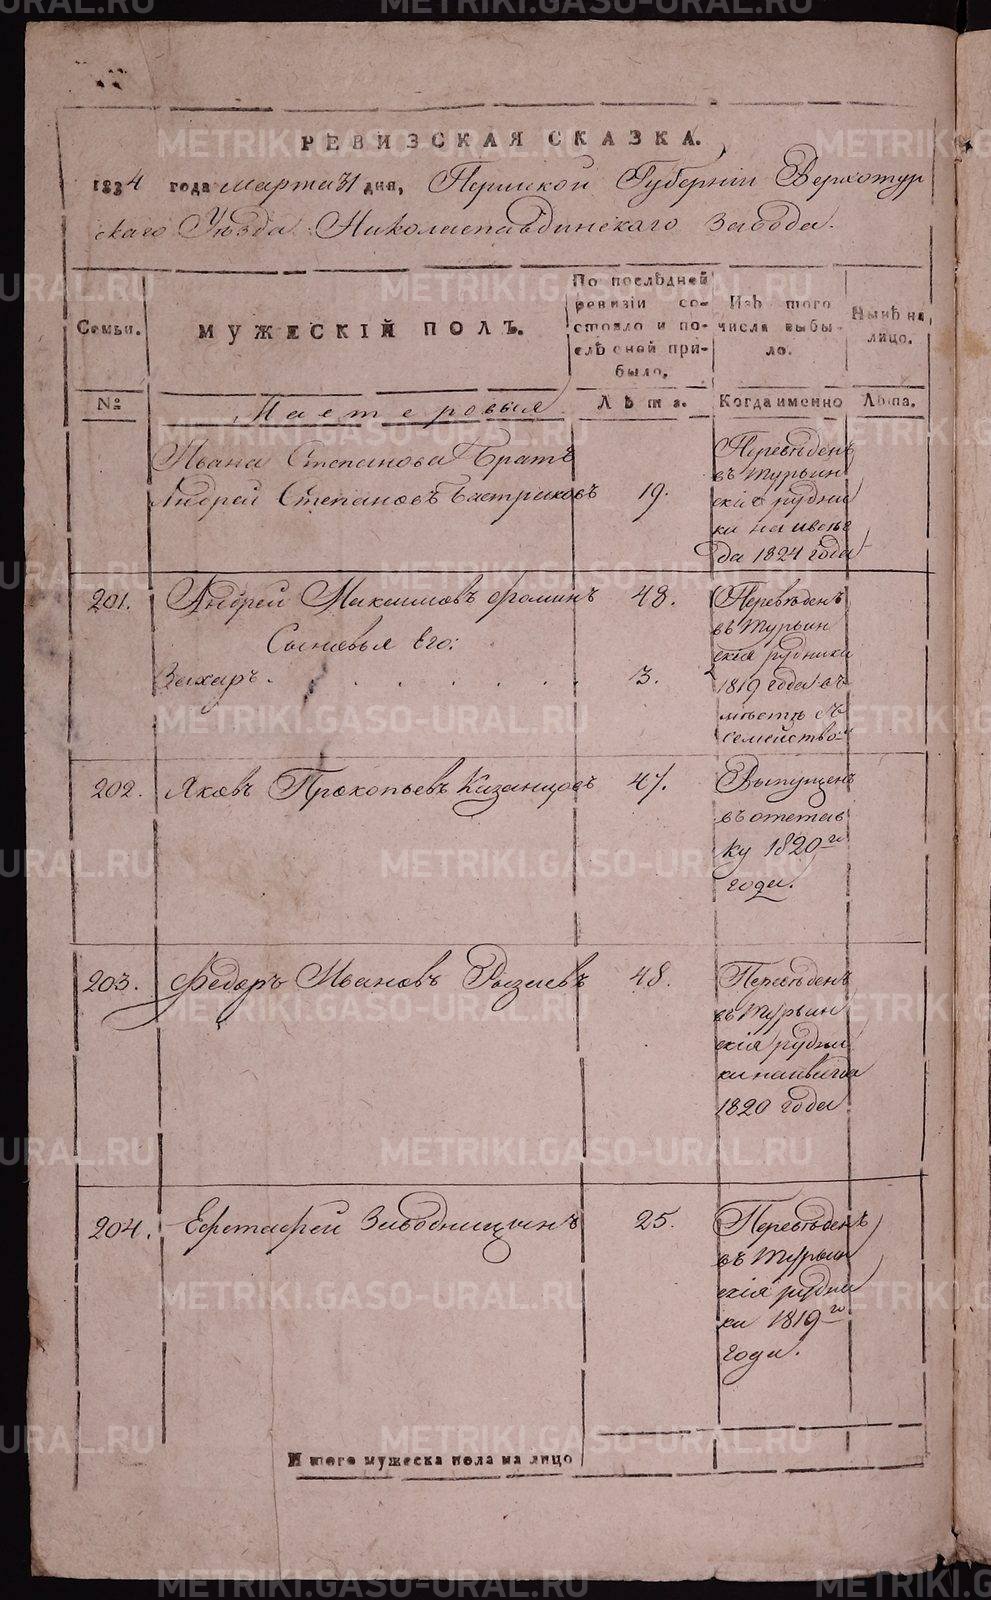 РЕВИЗСКАЯ СКАЗКА.
1834 года марта 31 дня, Пермской Губернии Верхотур
скаго Уезда Николаепавдинскаго завода.
Семьи.
МУЖЕСКІЙ ПОЛЪ.
По послѣдней ревизіи состояло и послѣ оной прибыло.
Изъ того числа выбыло.
Нынѣ на лицо.
№
Мастеровыя
Лѣта.
Когда именно
Лѣта.
Ивана Степанова Братъ
Андрей Степановъ Бастриковъ
19.
Переведенъ
въ Турьин
скія рудни
ки
да 1824 года
201.
Андрей Максимовъ Фоминъ
48.
Сыновья Его:
Захаръ . . . . . . .
3.
Переведенъ
въ Турьин
скія рудники
1819 года въ
мѣстѣ съ
семейство
202.
Яковъ Прокопьевъ Казанцовъ
47.
Выпущенъ
въ отстав
ку 1820го
года.
203.
Федоръ Ивановъ
48.
Переведенъ
въ Турьин
скія рудни
ки
1820 года
204.
Ефстафей Заводницынъ
25.
Переведенъ
въ Турьин
скія рудни
ки 1819го
года.
Итого мужеска пола на лицо
METRIKI.GASO-URAL.RU